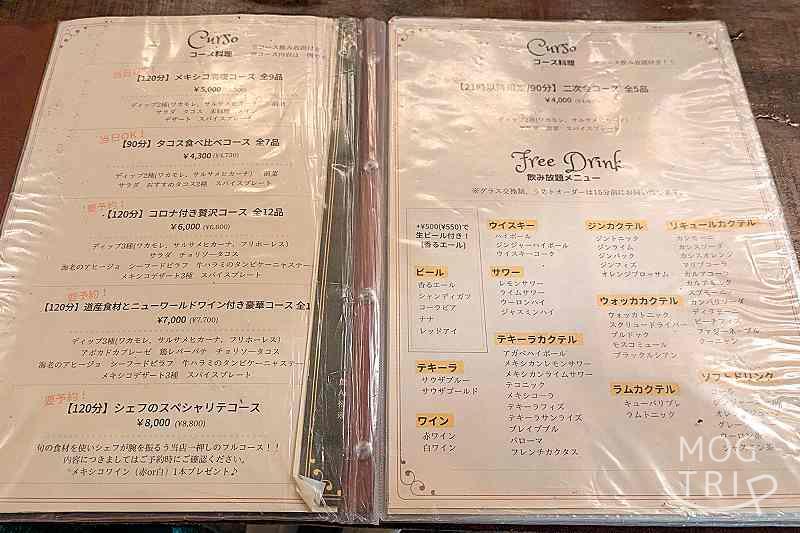 Curso
コース料理
当日OK!
【120分】メキシコ満喫コース 全9品
¥5,000
ディップ2種(ワカモレ、サルサメヒカーナ) 前菜
サラダ タコス
デザート スパイスプレート
当日OK!
【90分】タコス食べ比べコース 全7品
¥4,300 (¥4,730)
ディップ2種(ワカモレ、サルサメヒカーナ) 前菜
サラダ おすすめタコス2種 スパイスプレート
要予約!
【120分】コロナ付き贅沢コース 全12品
¥6,000 (¥6,600)
ディップ3種(ワカモレ、サルサメヒカーナ、フリホーレス)
サラダ チョリソータコス
海老のアヒージョ シーフードピラフ 牛ハラミのタンピケーニャステー
メキシコデザート3種 スパイスプレート
要予約!
【120分】道産食材とニューワールドワイン付き豪華コース 全1
¥7,000 (¥7,700)
ディップ3種(ワカモレ、サルサメヒカーナ、フリホーレス)
アボカドカプレーゼ 鶏レバーパテ チョリソータコス
海老のアヒージョ シーフードピラフ 牛ハラミのタンピケーニャステー
メキシコデザート3種 スパイスプレート
要予約!
【120分】シェフのスペシャリテコース
¥8,000 (¥8,800)
旬の食材を使いシェフが腕を振るう当店一押しのフルコース!!
内容につきましてはご予約時にご確認ください。
*メキシコワイン(赤or白)1本プレゼント♪
Curso
コース料理
コース飲み放題付き!!
【21時以降限定/90分】二次会コース 全5品
¥4,000
ディップ2種(ワカモレ、サルサメヒカーナ)
スパイスプレート
Free Drink
飲み放題メニュー
※グラス交換制、ラストオーダーは15分前にお伺い致します。
+¥500(¥550)で
生ビール付き!
[香るエール]
ビール
香るエール
シャンディガフ
コークビア
ナナ
レッドアイ
テキーラ
サウザブルー
サウザゴールド
ワイン
赤ワイン
白ワイン
ウイスキー
ハイボール
ジンジャーハイボール
ウイスキーコーク
サワー
レモンサワー
ライムサワー
ウーロンハイ
ジャスミンハイ
テキーラカクテル
アガベハイボール
メキシカンレモンサワー
メキシカンライムサワー
テコニック
メキシコーラ
テキーラフィズ
テキーラサンライズ
ブレイブブル
パローマ
フレンチカクタス
ジンカクテル
ジントニック
ジンライム
ジンバック
ジンフィズ
オレンジブロッサム
ウォッカカクテル
ウォッカトニック
スクリュードライバー
ブルドッグ
モスコミュール
ブラックルシアン
ラムカクテル
キューバリブレ
ラムトニック
リキュールカクテル
カシスソーダ
カシスオレンジ
カルアコーク
カルアミルク
スプモーニ
カンパリソーダ
ファジーネーブル
クーニャン
ソフトドリンク
MOG
TRIP